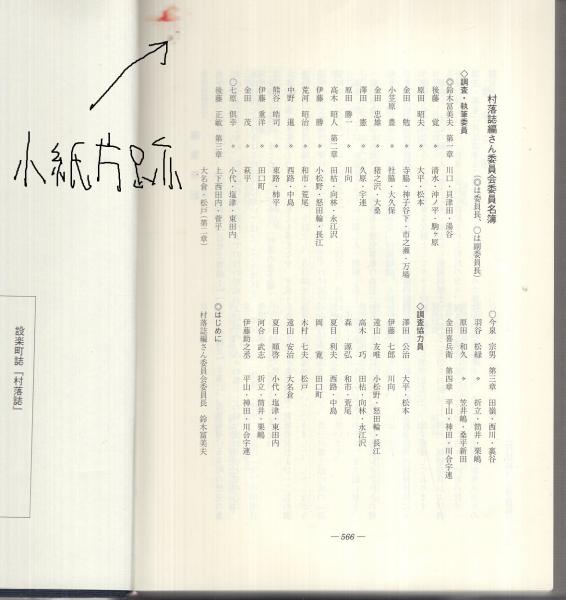 小紙片跡
設楽町誌『村落誌』
村落誌編さん委員会委員名簿
(◎は委員長、○は副委員長)
◇調査・執筆委員
◎鈴木冨美夫 第一章 川口・貝津田・湯谷
後藤 覚 〃 清水・沖ノ平・駒ケ原
原田 昭夫 〃 大平・松本
金田 勉 〃 寺脇・神子谷下・市之瀬・万場
小笠原 豊 〃 社脇・大久保
金田 忠雄 〃 猪之沢・大桑
澤田 憲 〃 久原・宇連
原田 勝一 〃 川向
高木 昭人 第二章 田枯・向林・永江沢
伊藤 勝 〃 小松野・怒田輪・長江
荒河 昭治 〃 和市・荒尾
中野 進 〃 西路・中島
熊谷 皓司 〃 東路・柿平
伊藤 重洋 〃 田口町
金田 茂 〃 萩平
○七原 倶幸 〃 小代・塩津・東田内
後藤 正敏 第三章 上下西田内・菅平
大名倉・松戸(第二章)
○今泉 宗男 第三章 田嶺・西川・裏谷
羽谷 松緑 〃 折立・筒井・栗嶋
原田 和久 〃 笠井嶋・桑平新田
金田喜兵衛 第四章 平山・神田・川合宇連
◇調査協力員
澤田 公治 大平・松本
伊藤 七郎 川向
遠山 友唯 小松野・怒田輪・長江
高木 巧 田枯・向林・永江沢
森 源弘 和市・荒尾
夏目 利夫 西路・中島
岡 寛 田口町
木村 七夫 松戸
遠山 安治 大名倉
夏目 順啓 小代・塩津・東田内
河合 武志 折立・筒井・栗嶋
伊藤助之丞 平山・神田・川合宇連
◎はじめに
村落誌編さん委員会委員長 鈴木冨美夫
—566—